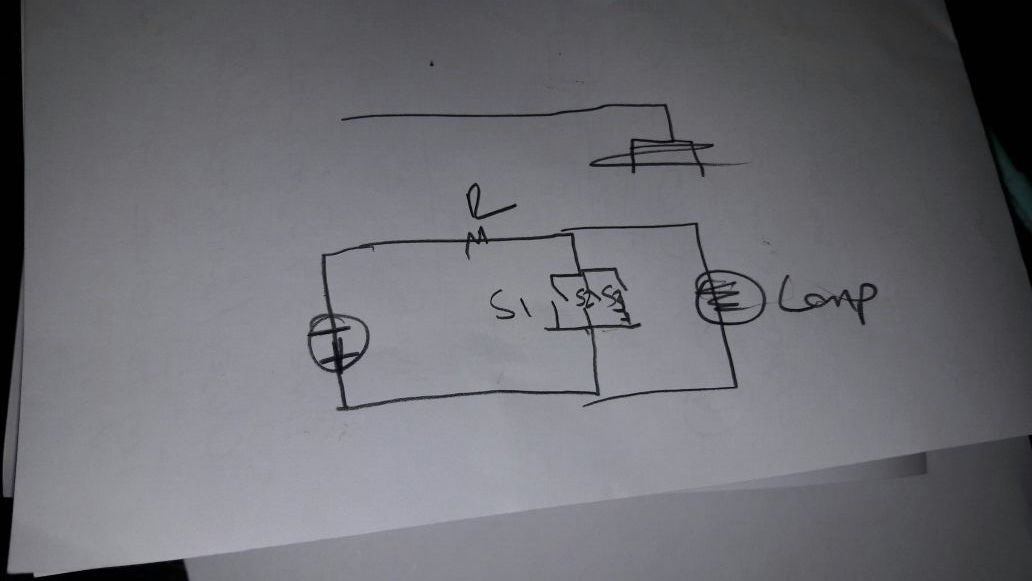 R
S1 S2 S3 Lamp